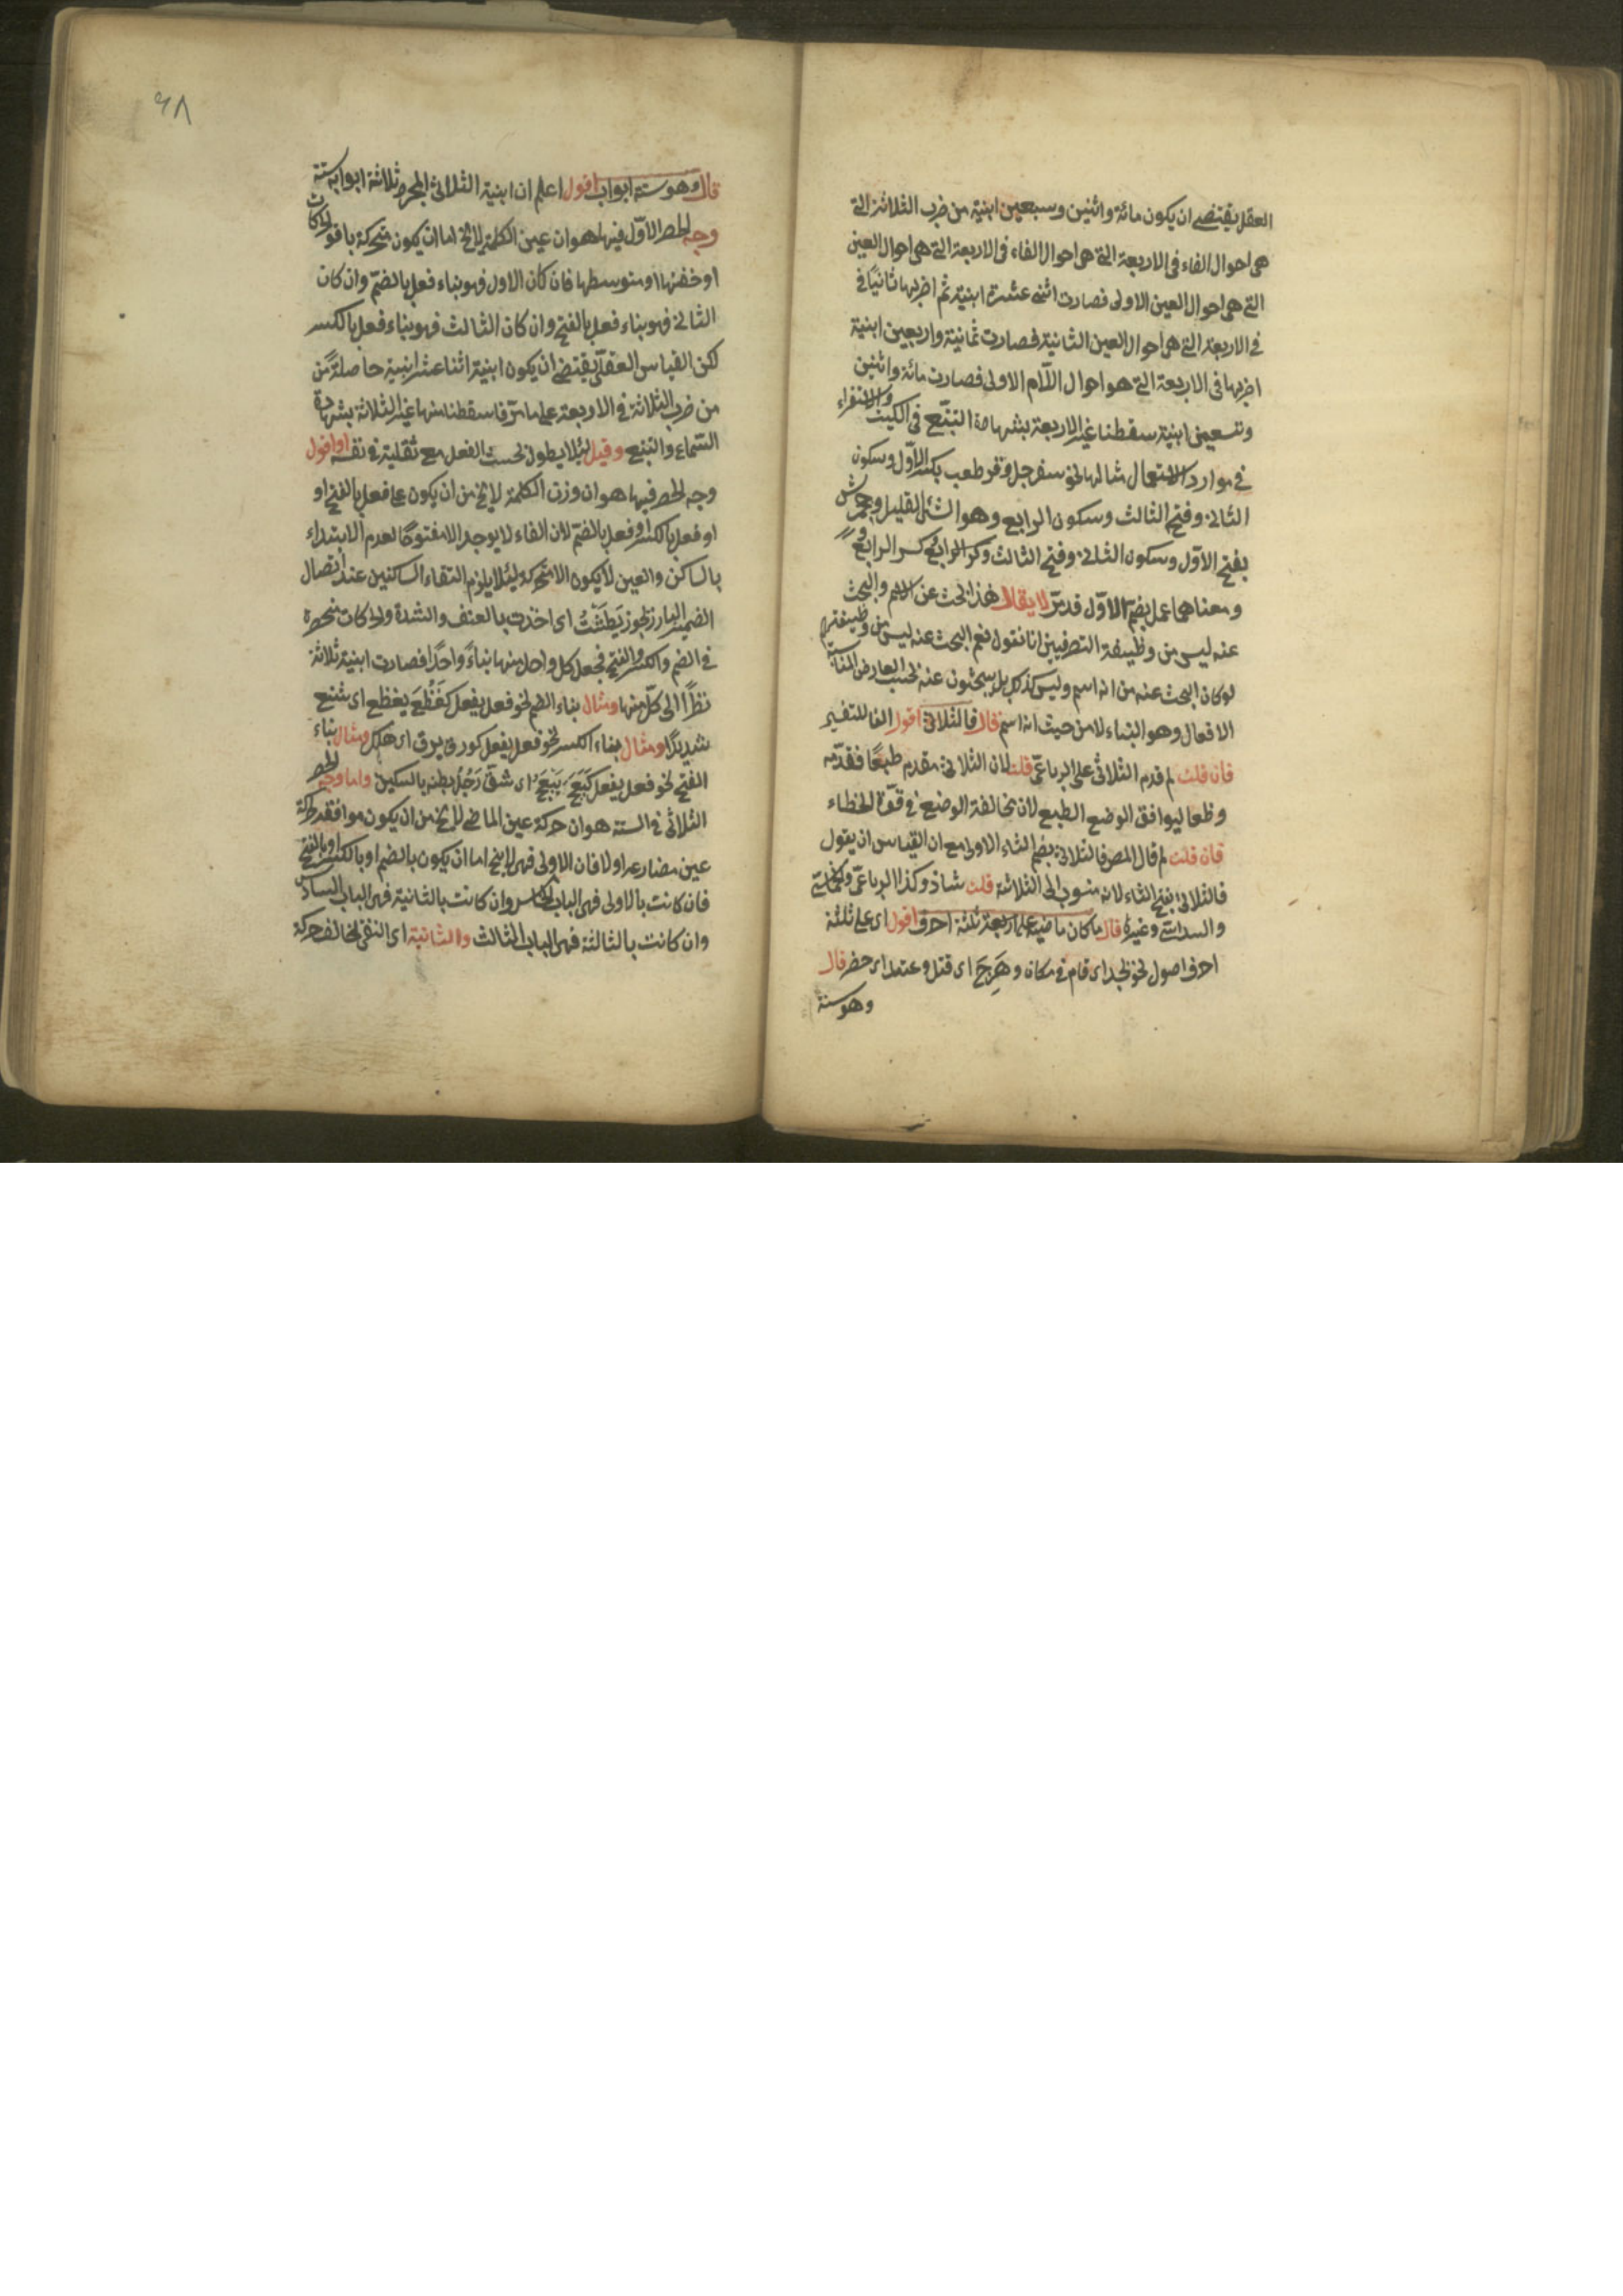 العقل يقتضى ان يكون مائة واثنين وسبعين ابنية من ضرب الثلاثة التى
هى احوال الفاء فى الاربعة التى هى احوال الفاء فى الاربعة التى هى احوال العين
التى هى احوال العين الاولى فصارت اثنى عشرة ابنية ثم اضربها ثانيًا فى
فى الاربعة التى هى احوال العين الثانية فصارت ثمانية واربعين ابنية
اضربها فى الاربعة التى هو احوال اللّام الاولى فصارت مائة واثنين
وتسعين ابنية سقطنا غير الاربعة بشهادة التتبّع فى الكيف والاستقراء
فى موارد الاستعمال مثالها نحو سفرجل وقرطعب بكسر الاوّل وسكون
الثانى وفتح الثالث وسكون الرابع وهو الشئ القليل وجحمرش
بفتح الاوّل وسكون الثانى وفتح الثالث وكسر الرابع
ومعناهما عمل بضم الاوّل قد مرّ لا يقال هذا البحث عن الاسم والبحث
عنه ليس من وظيفة التصرفيين انا نقول نعم البحث عنه ليس من وظيفتهم
لو كان البحث عنه من انه اسم وليس كذلك بل يبحثون عنه بحسب العارض المناسبة
الافعال وهو البناء لا من حيث انه اسم قال فالثلاثى اقول الفا للتفسير
فان قلت لم قدم الثلاثى على الرباعىّ قلت لان الثلاثى مقدم طبعًا فقدّمه
وظعا ليوافق الوضع الطبع لان مخالفة الوضع فى قوّة الخطاء
فان قلت لم قال المص فالثلاثى بضم الثاء الاولى مع ان القياس ان يقول
فالثلاثى بفتح الثاء لانه منسوب الى الثلاثة قلت شاذ وكذا الرباعىّ والخماسى
والسداسى وغيره قال ما كان ماضيه على اربعة ثلثة احرف اقول اى على ثلثة
احرف اصول نحو نجد اى قام فى مكانه وهَرِجَ اى قتل وعتد اى حضر قال
وهو ستة
٦٨
قال وهو ستة ابواب اقول اعلم ان ابنية الثلاثى المجرد ثلاثة ابوابه ستة
وجه الحصر الاوّل فيها هو ان عين الكلمة لا يخ اما ان يكون متحركة باقوى الحركات
او خفتها او متوسطها فان كان الاول فهو بناء فعل بالضمّ وان كان
الثانى فهو بناء فعل بالفتح وان كان الثالث فهو بناء فعل بالكسر
لكن القياس العقلّى يقتضى ان يكون ابنية اثنا عشر ابنية حاصلةً من
من ضرب الثلاثة فى الاربعة على ما مرّ فاسقطنا منها غير الثلاثة بشهادة
السّماع والتتبع وقيل لئلا يطول بحسب الفعل مع ثقلية فى نفسه او اقول
وجه الحصر فيها هو ان وزن الكلمة لا يخ من ان يكون على فعل بالفتح او
او فعل بالكسر او فعل بالضم لان الفاء لا يوجد الا مفتوحًا لعدم الابتداء
بالساكن والعين لا يكون الا متحركة لئلا يلزم التقاء الساكنين عند اتصال
الضمير البارز نحو بَطَشْتُ اى اخذت بالعنف والشدة ولما كانت منحصرة
فى الضم والكسر والفتح فجعل كل واحد منها بناءً واحدًا فصارت ابنية ثلاثة
نظرًا الى كلّ منها ومثال بناء الضم نحو فعل يفعل كفَظُعَ يفظع اى شنيع
شديدًا ومثال بناء الكسر نحو فعل يفعل كورق يرق اى هلك ومثال بناء
الفتح نحو فعل يفعل كبَعَجَ يَبْعَجُ اى شقّ رَجُلٌ بطنه بالسكين واما وجه الحصر
الثلاثى فى الستة هو ان حركة عين الماضى لا يخ من ان يكون موافقة لحركة
عين مضارعه او لا فان الاولى فهى لا يخ اما ان يكون بالضم او بالكسر او بالفتح
فان كانت بالاولى فهى الباب الخامس وان كانت بالثانية فهى الباب السادس
وان كانت بالثالثة فهى الباب الثالث والثانية اى النفى تخالف حركة